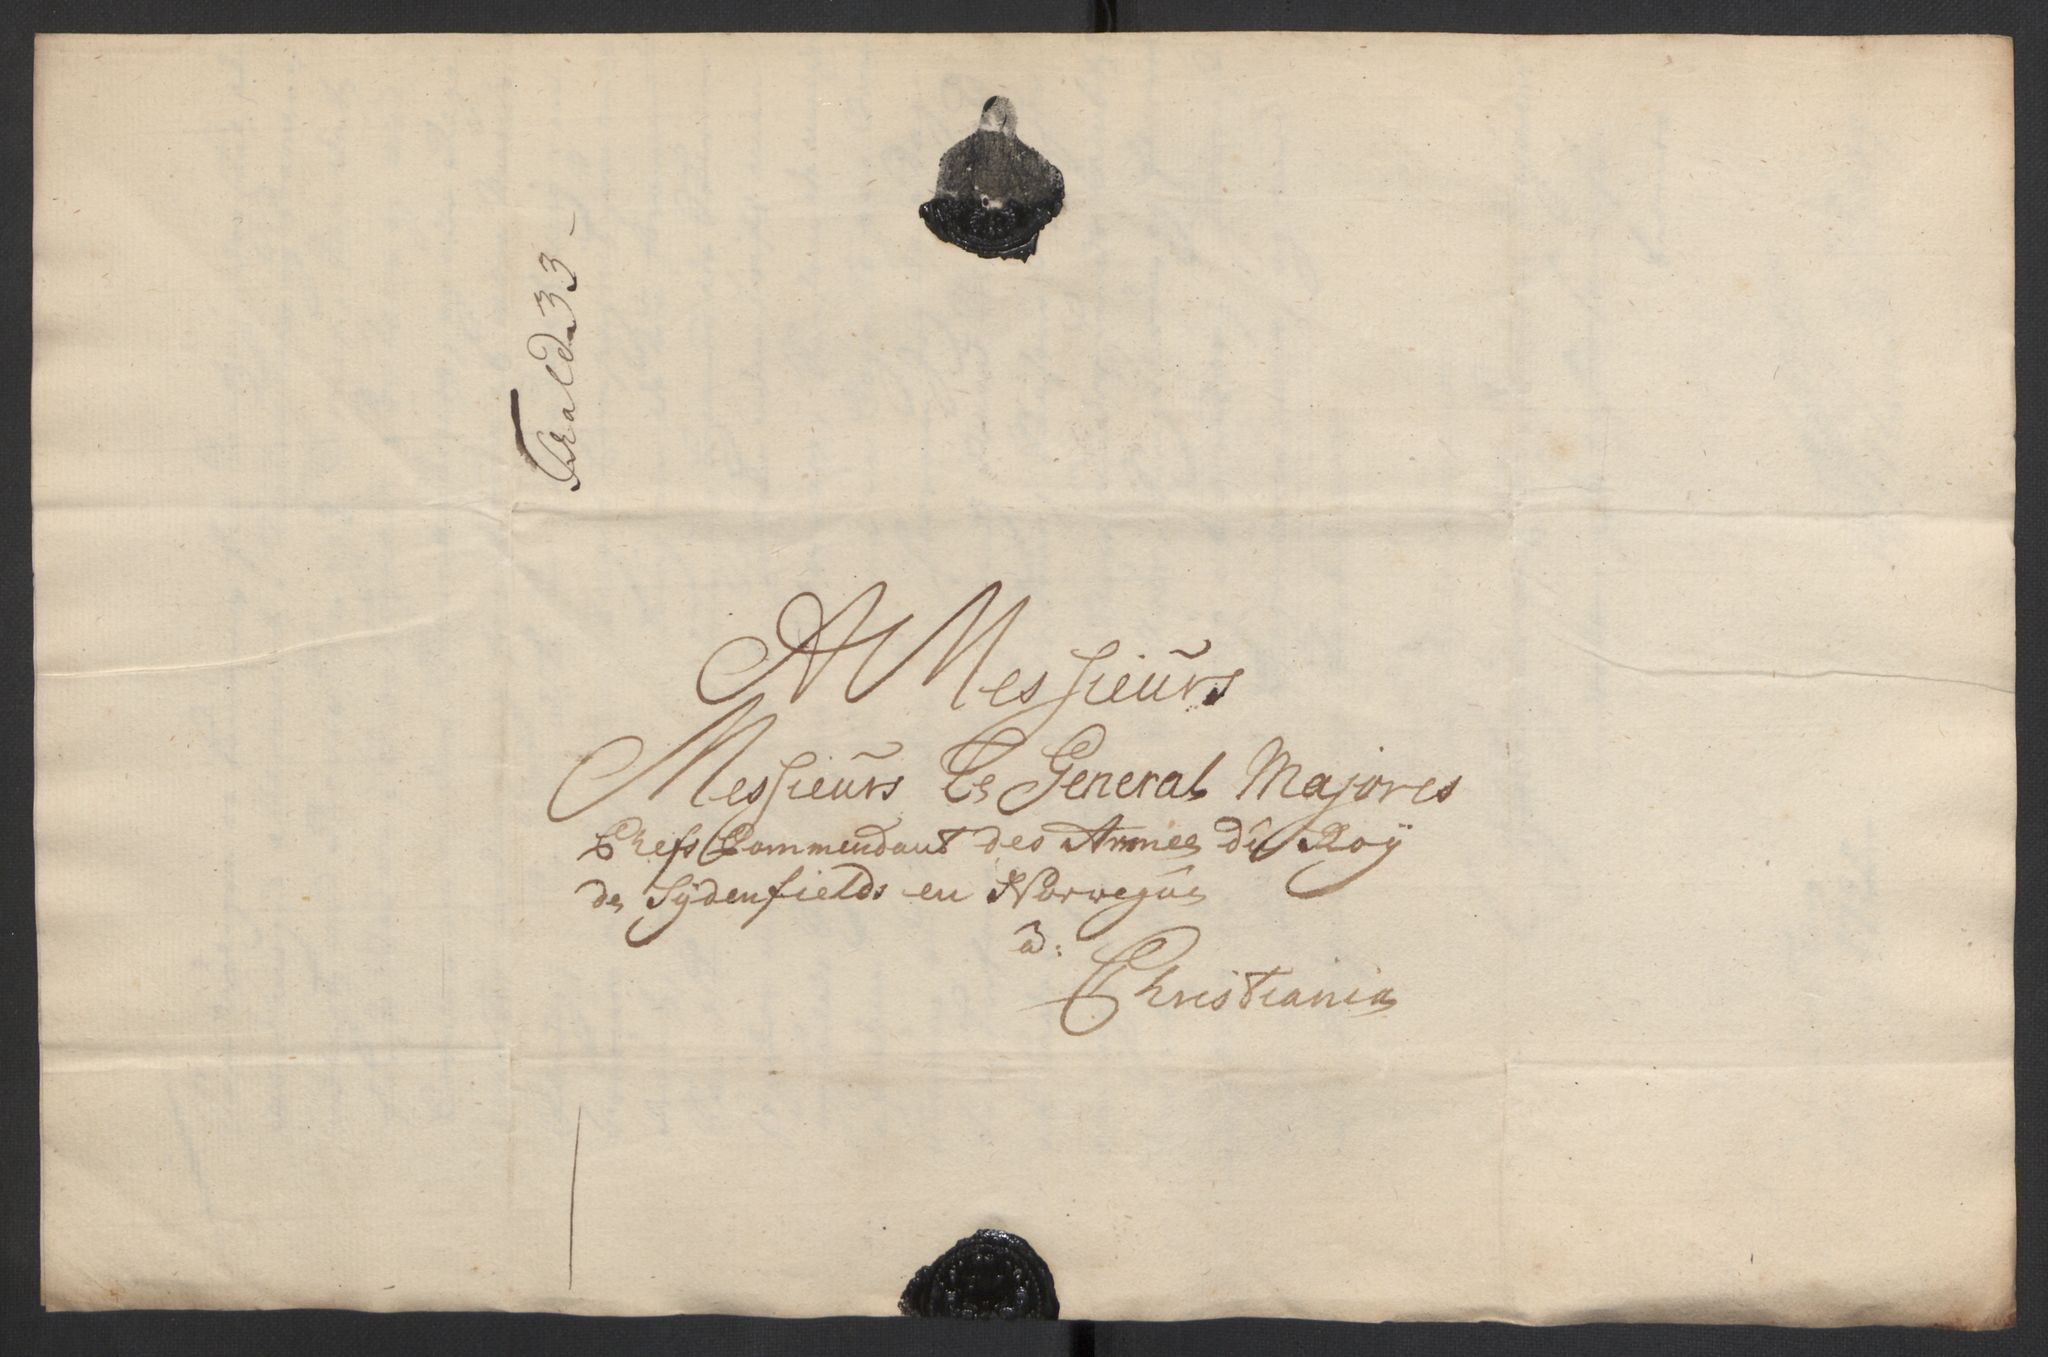 A Messieurs
Messieurs Le General Majores
Chefs Commendant des Armee du Roÿ
de Sÿdenfields en Norwegue
à:
Christiania
33